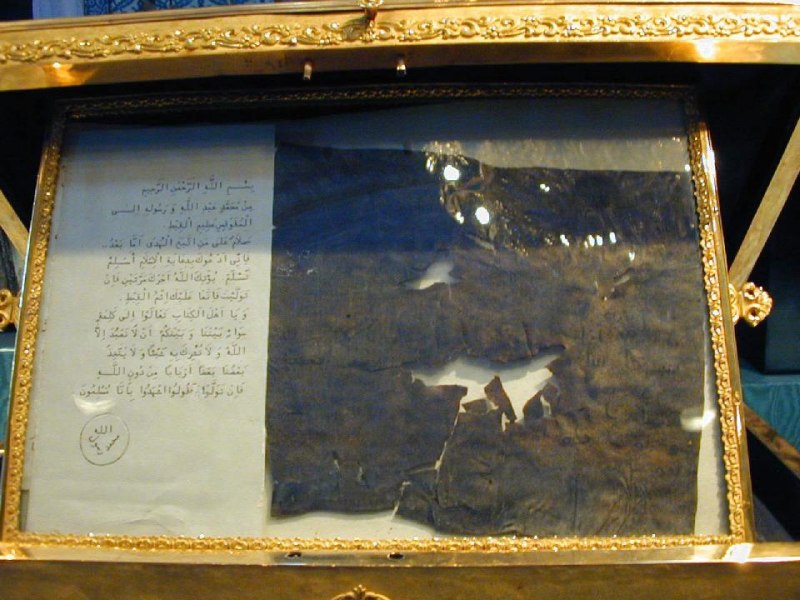 بِسْمِ اللَّهِ الرَّحْمٰنِ الرَّحِيمِ
مِنْ مُحَمَّدٍ عَبْدِ اللَّهِ وَرَسُولِهِ إِلَى
الْمُقَوْقِسِ عَظِيمِ الْقِبْطِ
سَلَامٌ عَلَى مَنِ اتَّبَعَ الْهُدَى أَمَّا بَعْدُ
فَإِنِّي أَدْعُوكَ بِدِعَايَةِ الْإِسْلَامِ أَسْلِمْ
تَسْلَمْ يُؤْتِكَ اللَّهُ أَجْرَكَ مَرَّتَيْنِ فَإِنْ
تَوَلَّيْتَ فَإِنَّمَا عَلَيْكَ إِثْمُ الْقِبْطِ .
وَ يَا أَهْلَ الْكِتَابِ تَعَالَوْا إِلَى كَلِمَةٍ
سَوَاءٍ بَيْنَنَا وَ بَيْنَكُمْ أَنْ لَا نَعْبُدَ إِلَّا
اللَّهَ وَ لَا نُشْرِكَ بِهِ شَيْئًا وَ لَا يَتَّخِذَ
بَعْضُنَا بَعْضًا أَرْبَابًا مِنْ دُونِ اللَّهِ
فَإِنْ تَوَلَّوْا فَقُولُوا اشْهَدُوا بِأَنَّا مُسْلِمُونَ
اللّٰه
رسول
محمد